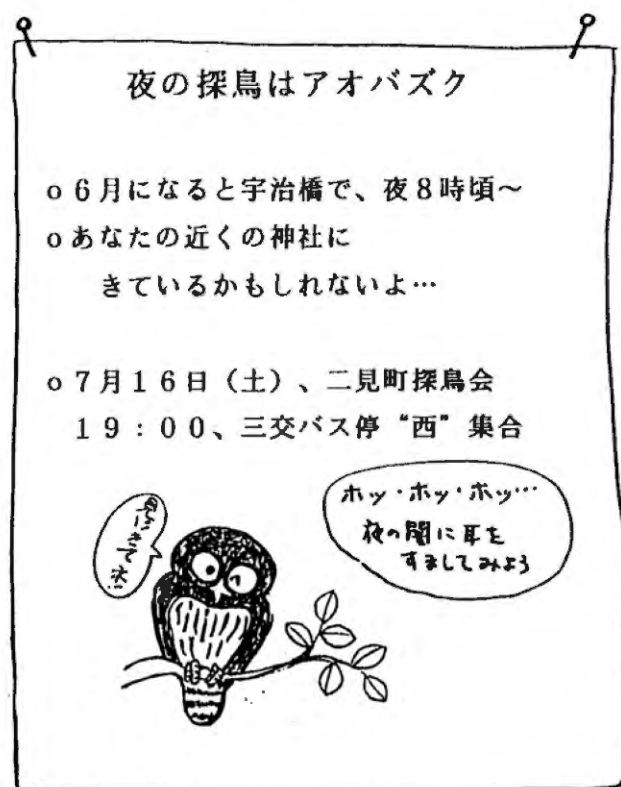 夜の探鳥はアオバズク
o6月になると宇治橋で、夜8時頃～
oあなたの近くの神社に
きているかもしれないよ…
o7月16日（土）、二見町探鳥会
19：00、三交バス停“西”集合
見にきてネ!!
ホッ・ホッ・ホッ…
夜の闇に耳を
すましてみよう